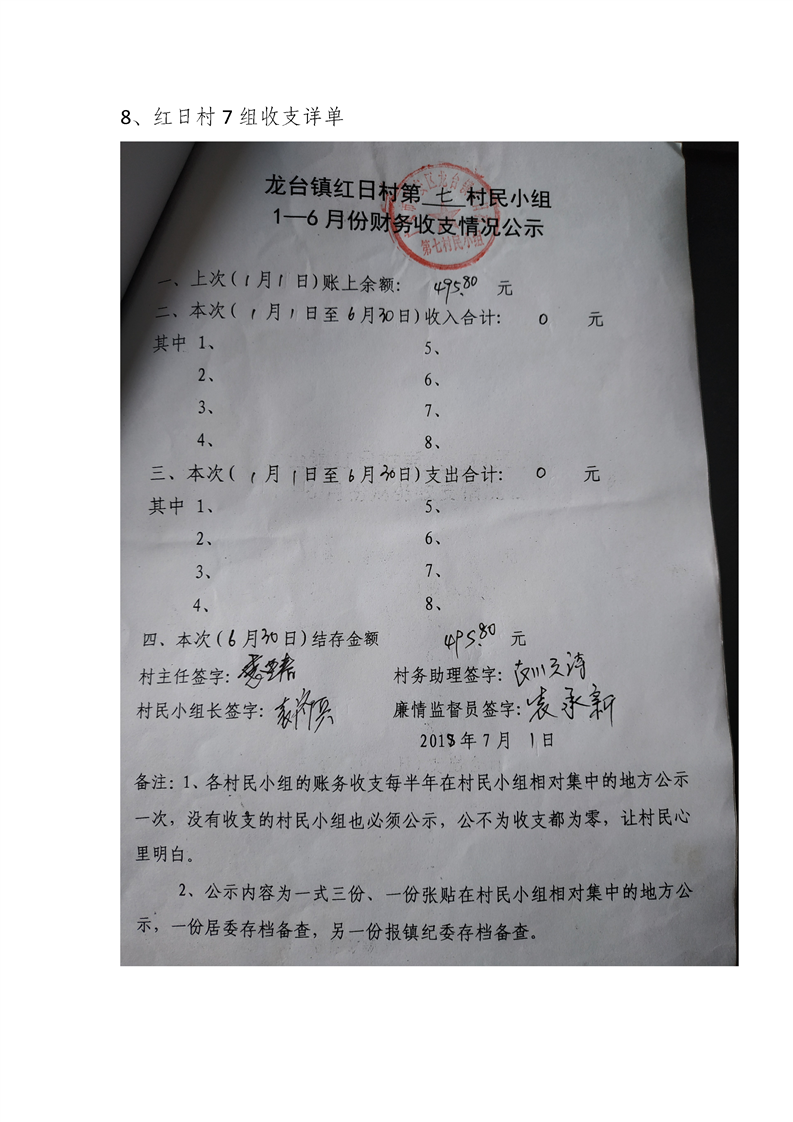 8、红日村 7 组收支详单
龙台镇红日村第 七 村民小组
1—6 月份财务收支情况公示
第七村民小组
一、上次(1月1日)账上余额： 495.80 元
二、本次(1月1日至6月30日)收入合计： 0 元
其中 1、 5、
2、 6、
3、 7、
4、 8、
三、本次(1月1日至6月30日)支出合计： 0 元
其中 1、 5、
2、 6、
3、 7、
4、 8、
四、本次(6月30日)结存金额 495.80 元
村主任签字： 村务助理签字：
村民小组长签字： 廉情监督员签字：袁承新
2018年7月1日
备注：1、各村民小组的账务收支每半年在村民小组相对集中的地方公示
一次，没有收支的村民小组也必须公示，公不为收支都为零，让村民心
里明白。
2、公示内容为一式三份、一份张贴在村民小组相对集中的地方公
示，一份居委存档备查，另一份报镇纪委存档备查。